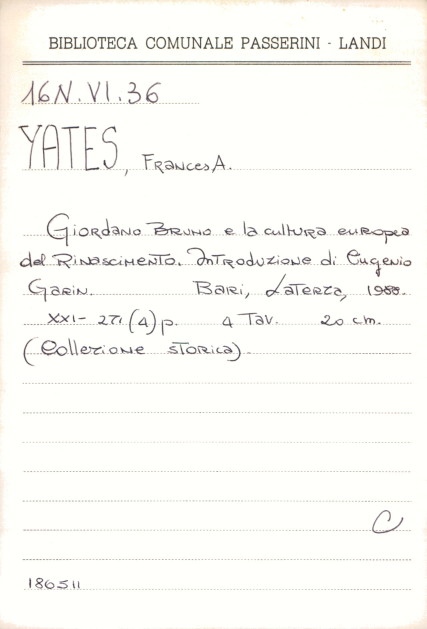 BIBLIOTECA COMUNALE PASSERINI - LANDI
16N.VI.36
YATES, Frances A.
Giordano Bruno e la cultura europea
del Rinascimento. Introduzione di Eugenio
Garin. Bari, Laterza, 1988.
XXI- 271 (4) p. 4 Tav. 20 cm.
(Collezione storica)
C
186511